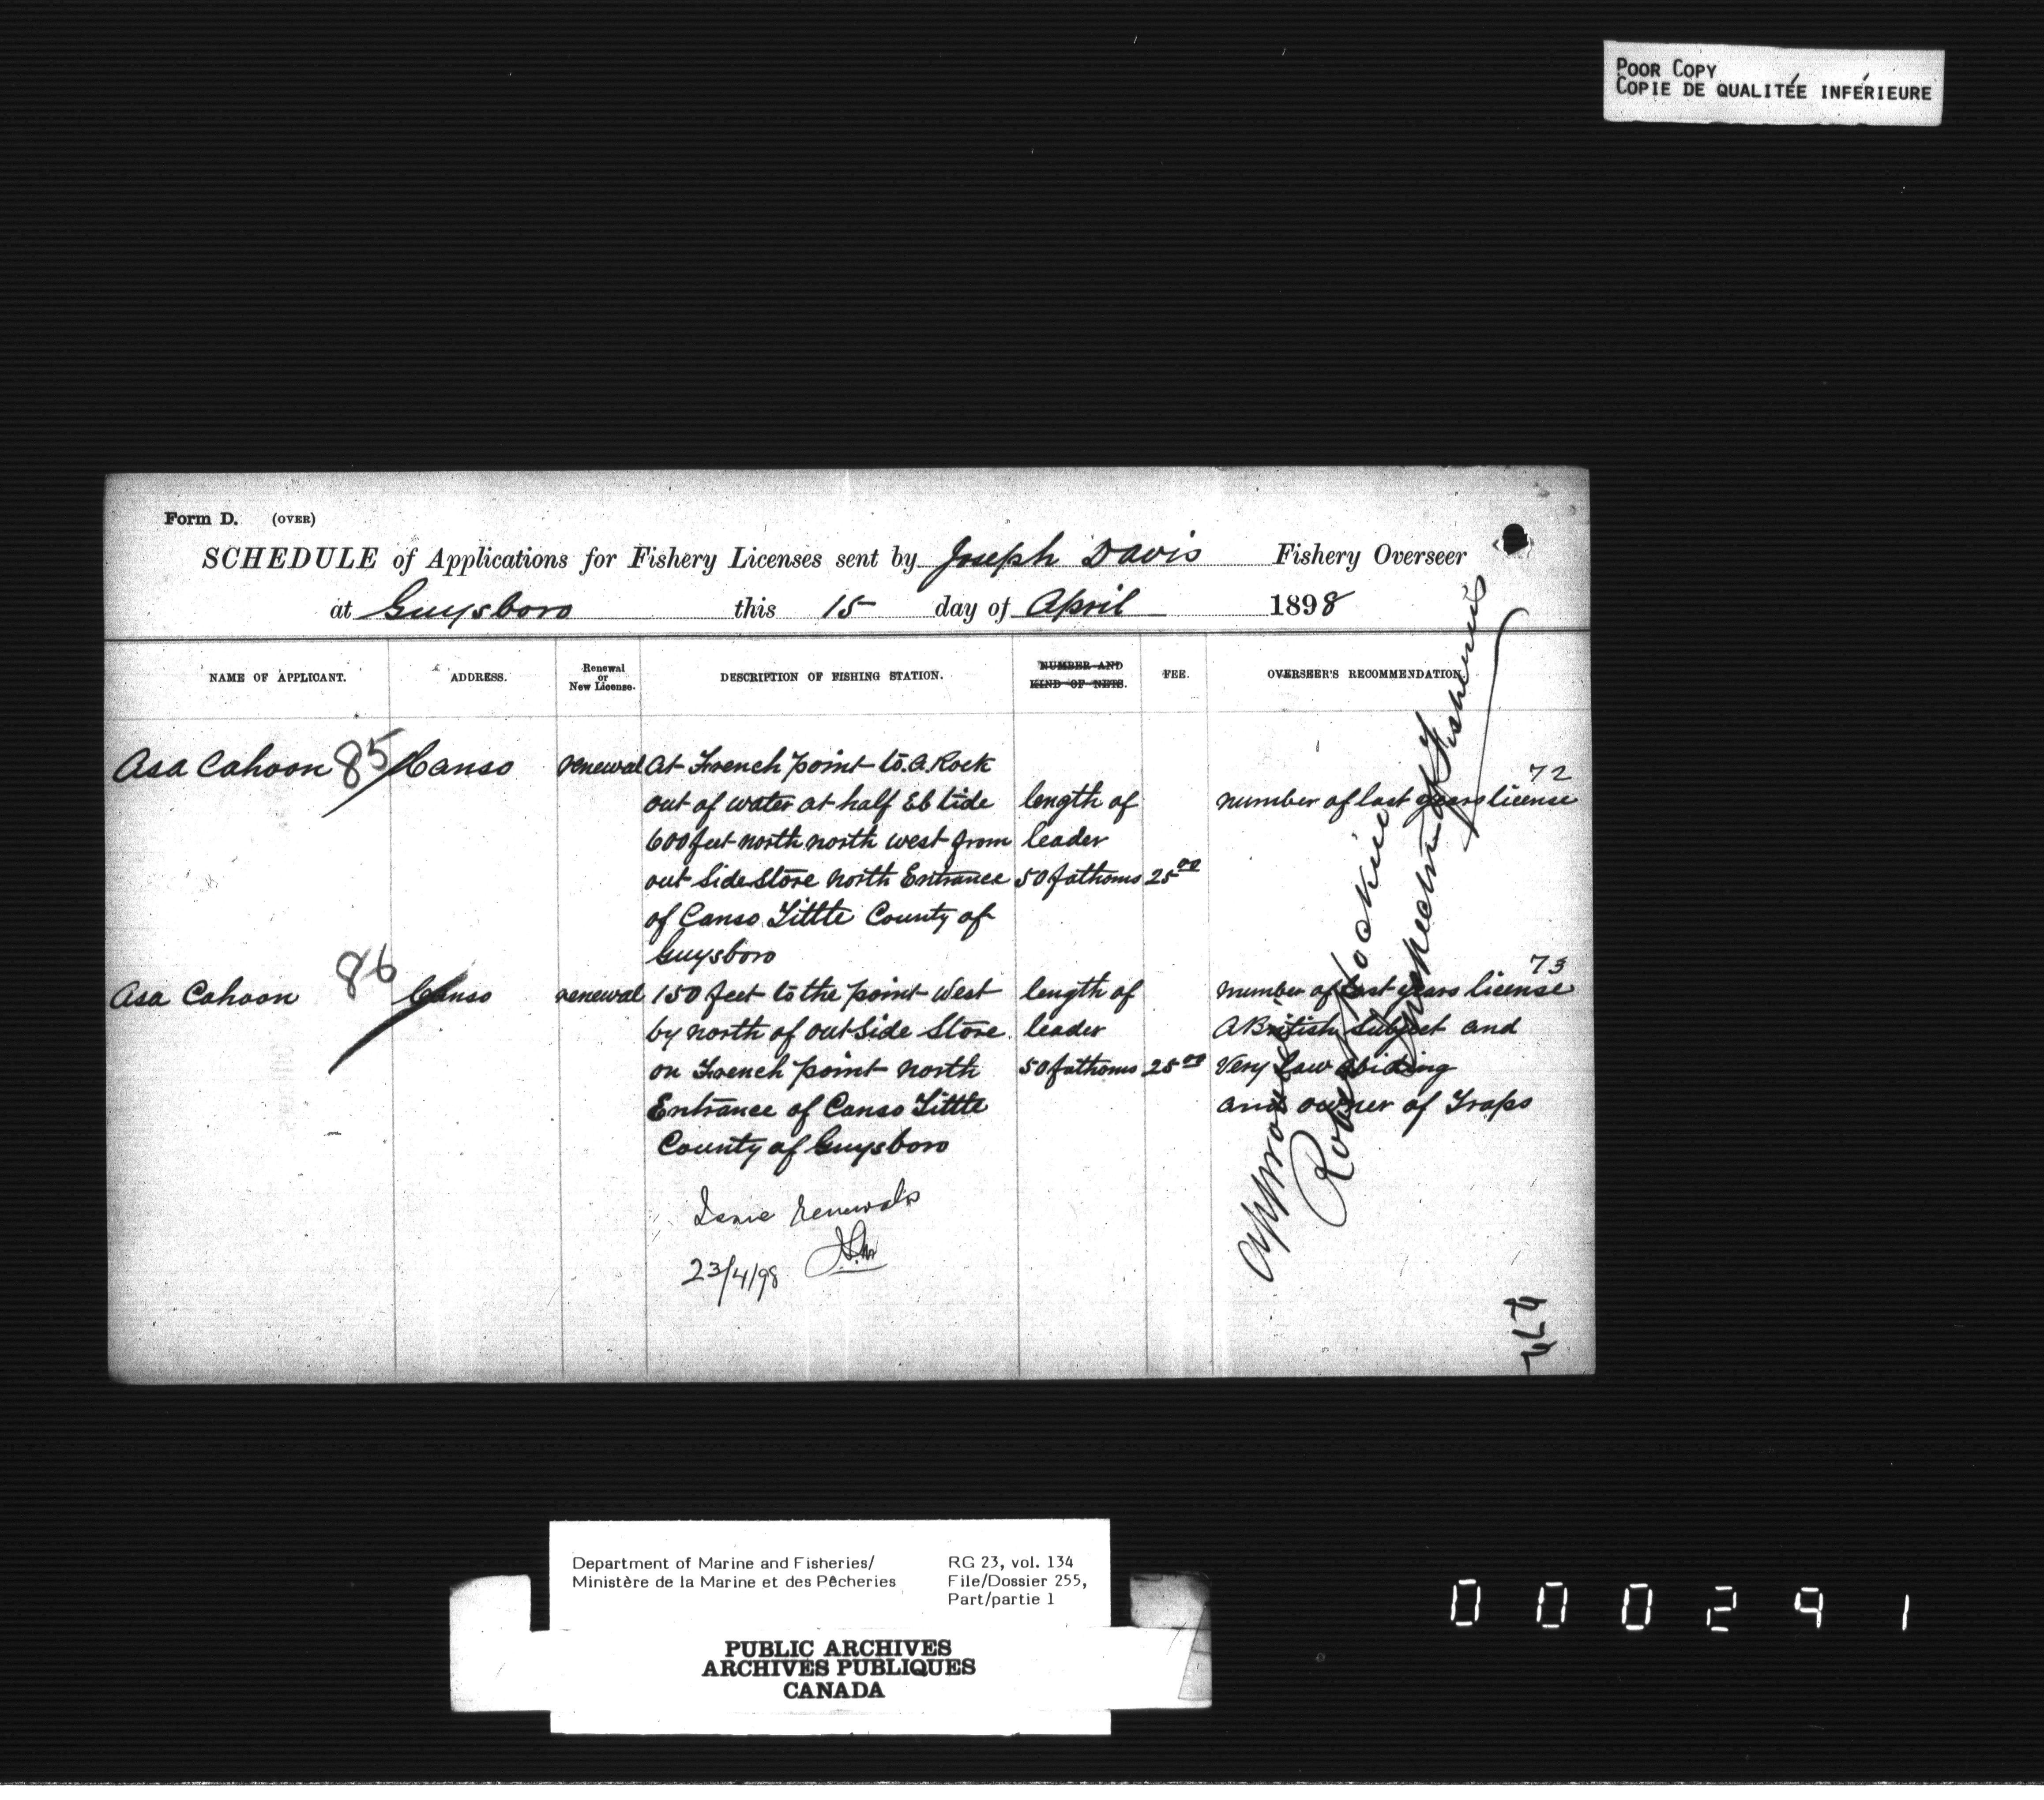 POOR COPY
COPIE DE QUALITÉE INFÉRIEURE
Form D. (OVER)
SCHEDULE of Applications for Fishery Licenses sent by Joseph Davis Fishery Overseer
at Guysboro this 15 day of April 1898
NAME OF APPLICANT. ADDRESS. Renewal or New License. DESCRIPTION OF FISHING STATION. NUMBER AND KIND OF NETS. FEE. OVERSEER'S RECOMMENDATION.
Asa Cahoon 85 Canso renewal At French point to a Rock
72
out of water at half Eb tide length of number of last years license
600 feet north north west from leader
out Side Store north Entrance 50 fathoms 25 00
of Canso Tittle County of
Guysboro
86
73
Asa Cahoon Canso renewal 150 feet to the point West length of number of last years license
by north of out Side Store leader A British Subject and
on French point north 50 fathoms 25 00 Very Law abiding
Entrance of Canso Tittle and owner of Traps
County of Guysboro
Issue renewals
23/4/98
Approved
Robert Hockin
Inspector of Fisheries
Department of Marine and Fisheries/
Ministère de la Marine et des Pêcheries
RG 23, vol. 134
File/Dossier 255,
Part/partie 1
PUBLIC ARCHIVES
ARCHIVES PUBLIQUES
CANADA
000291